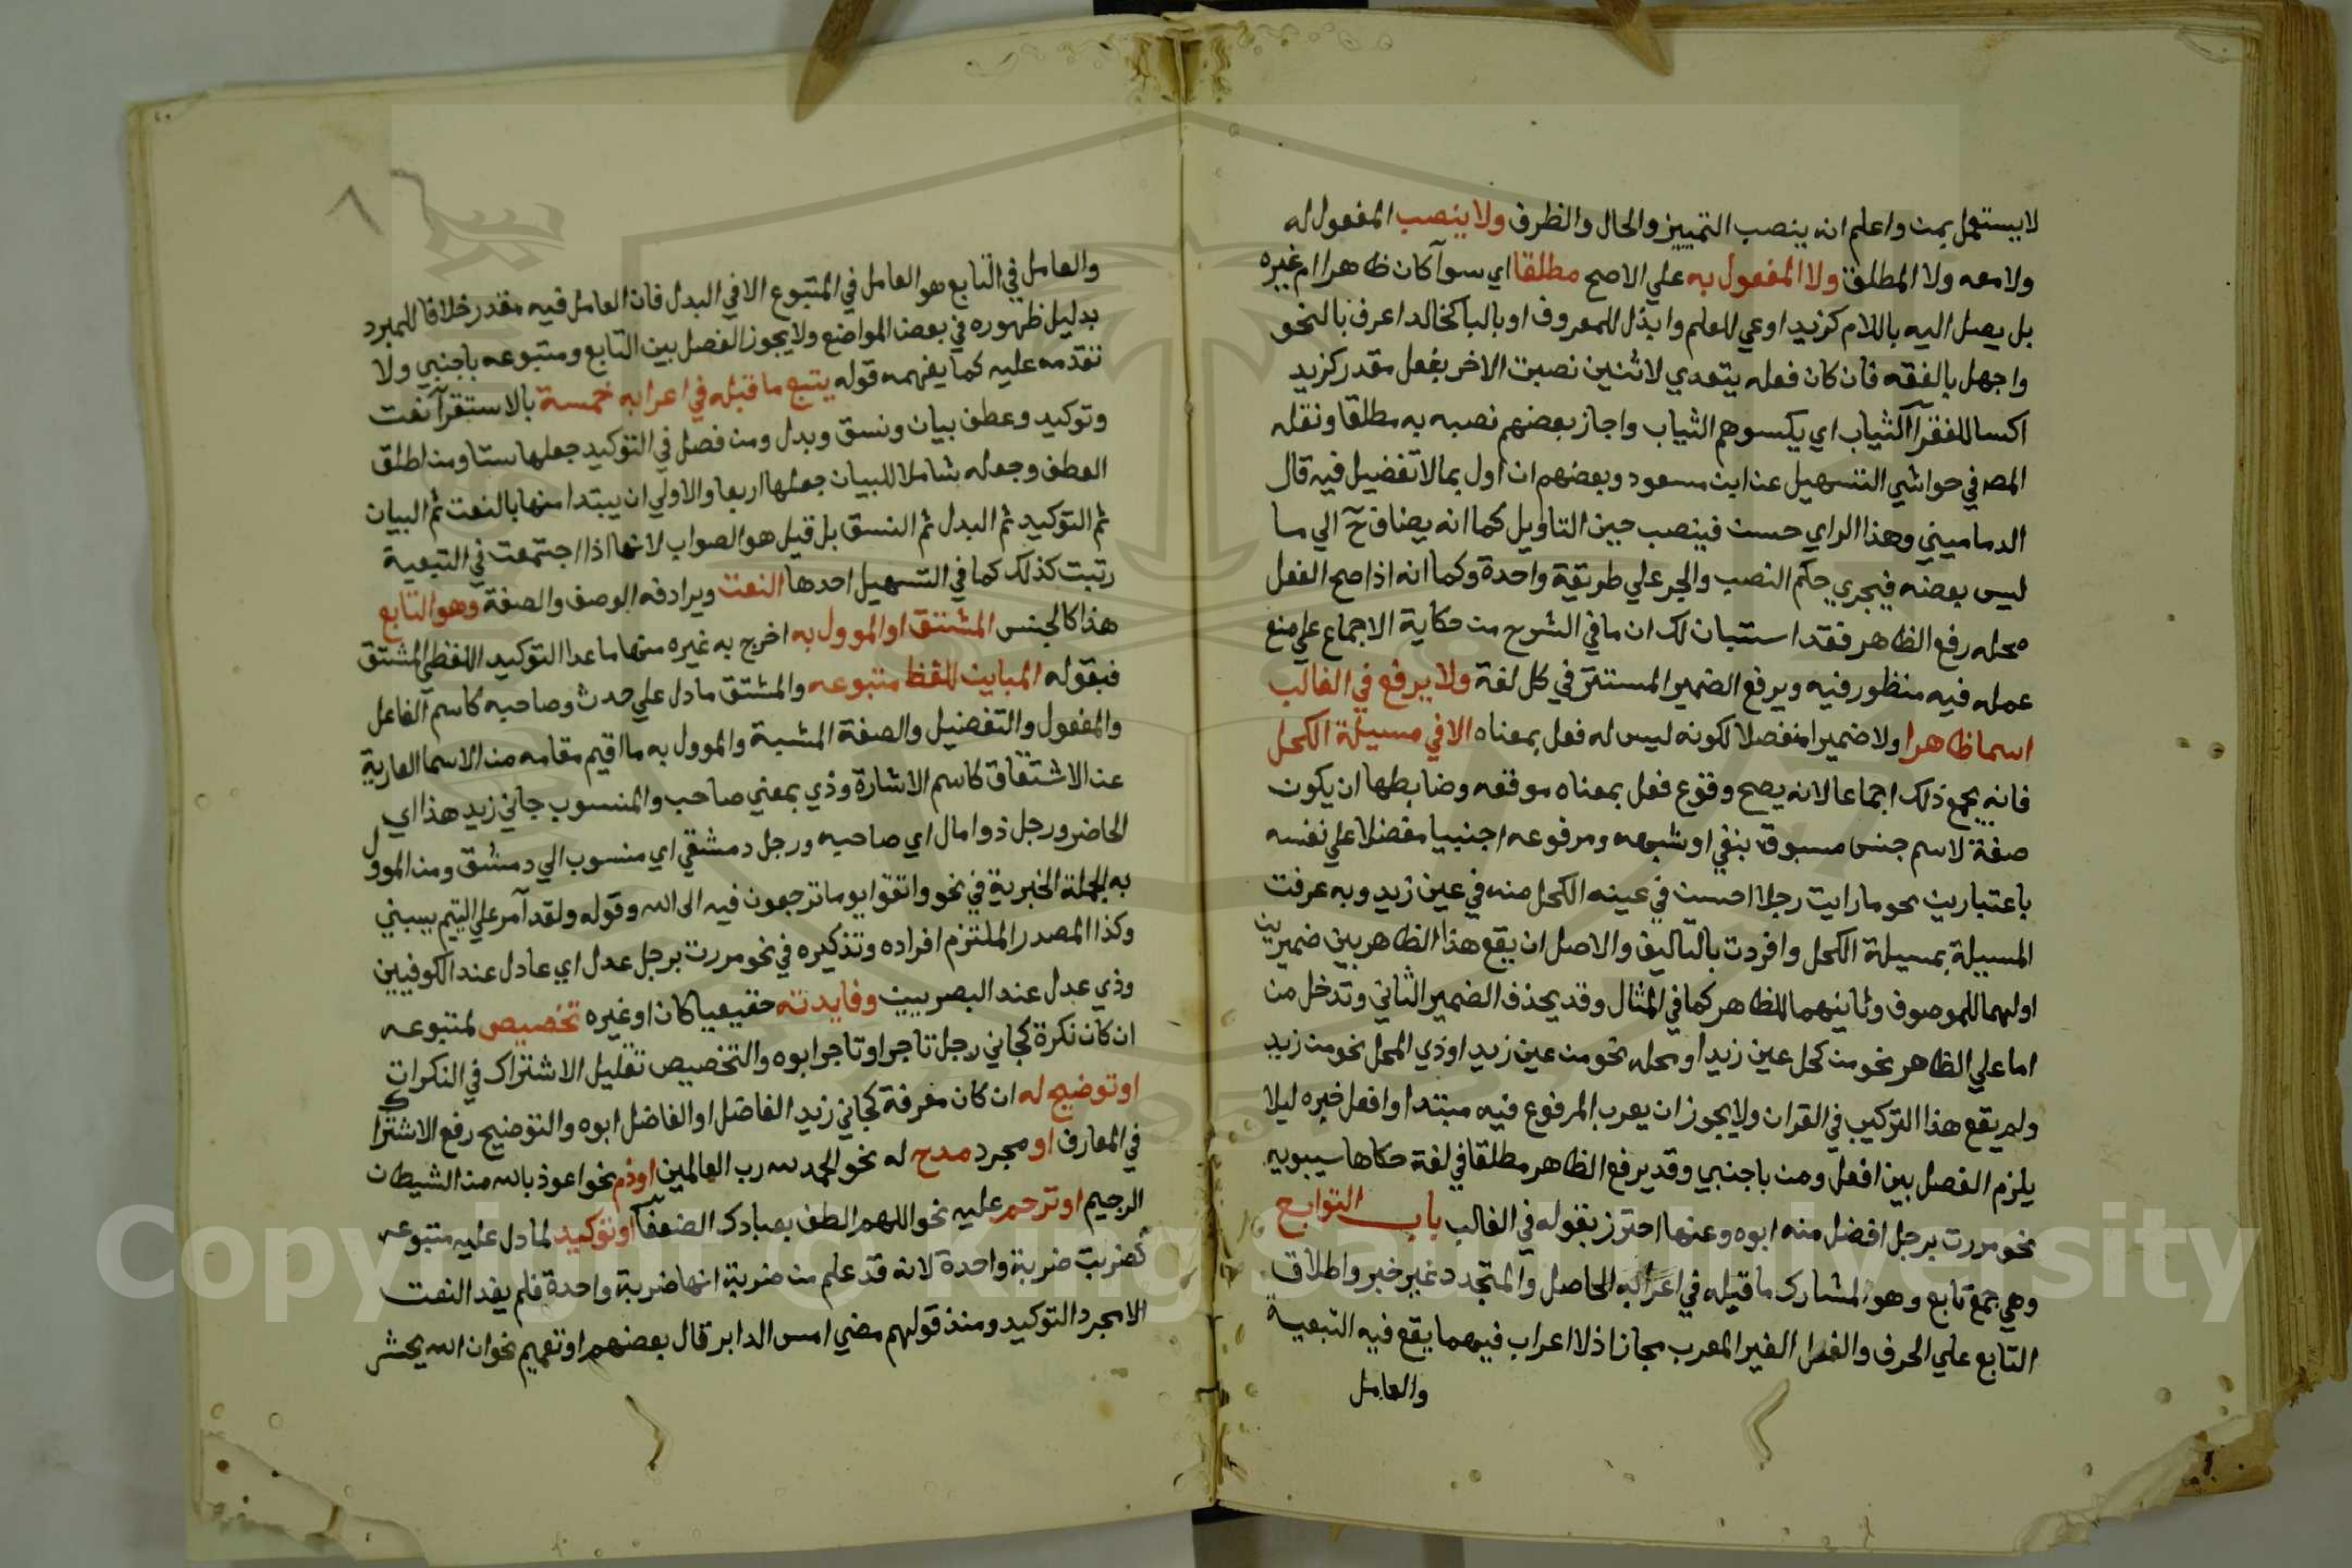 لايستعمل بمن واعلم انه ينصب التمييز والحال والظرف ولا ينصب المفعول له
ولا معه ولا المطلق ولا المفعول به علي الاصح مطلقا اي سوآ كان ظاهرا ام غيره
بل يصل اليه باللام كزيد اوعي للعلم وابذل للمعروف او بالبا كخالد اعرف بالنحو
واجهل بالفقه فان كان فعله يتعدي لاثنين نصبت الاخر بفعل مقدر كزيد
اكسا للفقرآ الثياب اي يكسوهم الثياب واجاز بعضهم نصبه به مطلقا ونقله
المصه في حواشي التسهيل عن ابن مسعود وبعضهم ان اول بما لا تفضيل فيه قال
الدماميني وهذا الراي حسن فينصب حين التاويل كما انه يضاف ح الي ما
ليس بعضه فيجري حكم النصب والجر علي طريقة واحدة وكما انه اذا صح الفعل
محله رفع الظاهر فقد استبان لك ان ما في الشرح من حكاية الاجماع علي منع
عمله فيه منظور فيه ويرفع الضمير المستتر في كل لغة ولا يرفع في الغالب
اسما ظاهرا ولا ضميرا منفصلا لكونه ليس له فعل بمعناه الا في مسيلة الكحل
فانه يجمع ذلك اجماعا لانه يصح وقوع فعل بمعناه موقعه وضابطها ان يكون
صفة لاسم جنس مسبوق بنفي او شبهه ومرفوعه اجنبيا مفضلا علي نفسه
باعتبارين نحو ما رايت رجلا احسن في عينه الكحل منه في عين زيد وبه عرفت
المسيلة بمسيلة الكحل وافردت بالتاليف والاصل ان يقع هذا الظاهر بين ضميرين
اولهما للموصوف وثانيهما للظاهر كما في المثال وقد يحذف الضمير الثاني وتدخل من
اما علي الظاهر نحو من كحل عين زيد او محله نحو من عين زيد او ذي المحل نحو من زيد
ولم يقع هذا التركيب في القران ولا يجوز ان يعرب المرفوع فيه مبتدا وافعل خبره ليلا
يلزم الفصل بين افعل ومن باجنبي وقد يرفع الظاهر مطلقا في لغة حكاها سيبويه
نحو مررت برجل افضل منه ابوه وعنها احترز بقوله في الغالب باب التوابع
وهي جمع تابع وهو المشارك ما قبله في اعرابه الحاصل والمتجدد غير خبر واطلاق
التابع علي الحرف والفعل الغير المعرب مجازا ذلا اعراب فيهما يقع فيه التبعية
والعامل
والعامل في التابع هو العامل في المتبوع الا في البدل فان العامل فيه مقدر خلافا للمبرد
بدليل ظهوره في بعض المواضع ولا يجوز الفصل بين التابع ومتبوعه باجنبي ولا
تقدمه عليه كما يفهمه قوله يتبع ما قبله في اعرابه خمسة بالاستقرآ نعت
وتوكيد وعطف بيان ونسق وبدل ومن فصل في التوكيد جعلها ستا ومن اطلق
العطف وجعله شاملا للبيان جعلها اربعا والاولي ان يبتدا منها بالنعت ثم البيان
ثم التوكيد ثم البدل ثم النسق بل قيل هو الصواب لانها اذا اجتمعت في التبعية
رتبت كذلك كما في التسهيل احدها النعت ويرادفه الوصف والصفة وهو التابع
هذا كالجنس المشتق او الموول به اخرج به غيره منها ما عدا التوكيد اللفظي المشتق
فبقوله المباين للفظ متبوعه والمشتق ما دل علي حدث وصاحبه كاسم الفاعل
والمفعول والتفضيل والصفة المشبهة والموول به ما اقيم مقامه من الاسما العارية
عن الاشتقاق كاسم الاشارة وذي بمعني صاحب والمنسوب جاني زيد هذا اي
الحاضر ورجل ذو امال اي صاحبه ورجل دمشقي اي منسوب الي دمشق ومن الموول
به الجملة الخبرية في نحو واتقوا يوما ترجعون فيه الى الله وقوله ولقد آمر علي اللئيم يسبني
وكذا المصدر الملتزم افراده وتذكيره في نحو مررت برجل عدل اي عادل عند الكوفيين
وذي عدل عند البصريين وفايدته حقيقيا كان او غيره تخصيص لمتبوعه
ان كان نكرة كجاني رجل تاجر او تاجر ابوه والتخصيص تقليل الاشتراك في النكرات
او توضيح له ان كان معرفة كجاني زيد الفاضل او الفاضل ابوه والتوضيح رفع الاشتراك
في المعارف او مجرد مدح له نحو الحمد لله رب العالمين او ذم نحو اعوذ بالله من الشيطان
الرجيم او ترحم عليه نحو اللهم الطف بعبادك الضعفآ او توكيد لما دل عليه متبوعه
كضربت ضربة واحدة لانه قد علم من ضربة انها ضربة واحدة فلم يفد النعت
الا مجرد التوكيد ومنذ قولهم مضي امس الدابر قال بعضهم او تعميم نحو ان الله يحشر
Copyright © King Saud University